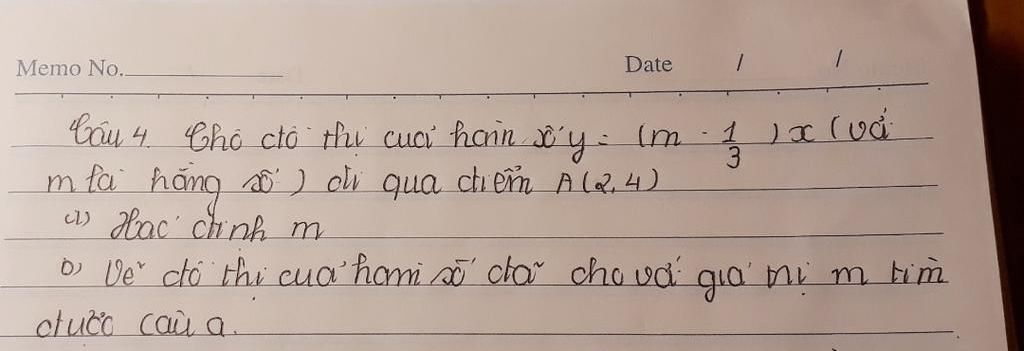 Memo No. Date / /
Câu 4. Cho đồ thị của hàm số y = (m - 1/3)x (với
m là hằng số) đi qua điểm A(2,4)
a) Xác định m
b) Vẽ đồ thị của hàm số đã cho với giá trị m tìm
được câu a.